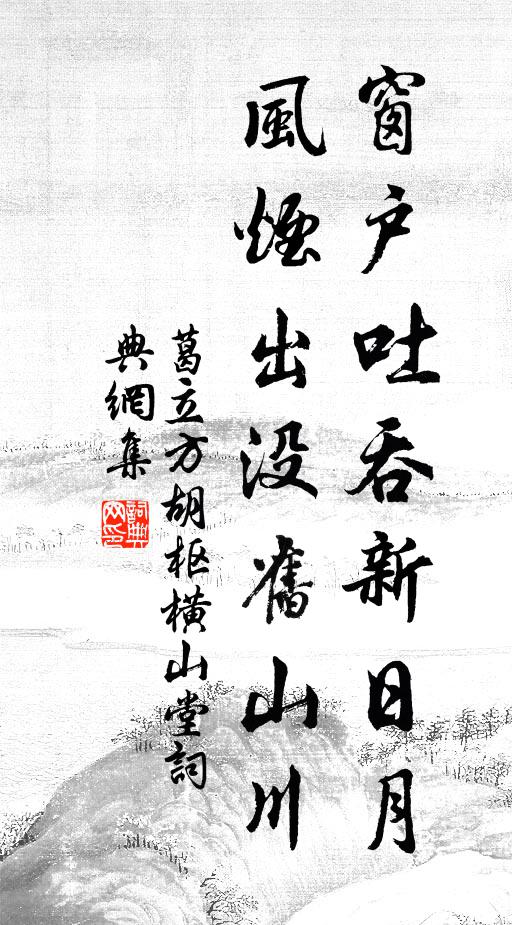 窗户吐吞新日月
風煙出没舊山川
葛立方胡枢横山堂詞
典網集
詞典网印